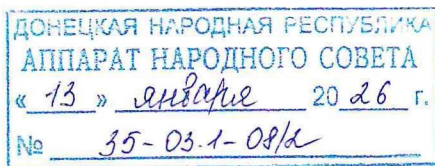 ДОНЕЦКАЯ НАРОДНАЯ РЕСПУБЛИКА
АППАРАТ НАРОДНОГО СОВЕТА
« 13 » января 20 26 г.
№ 35-03.1-08/2